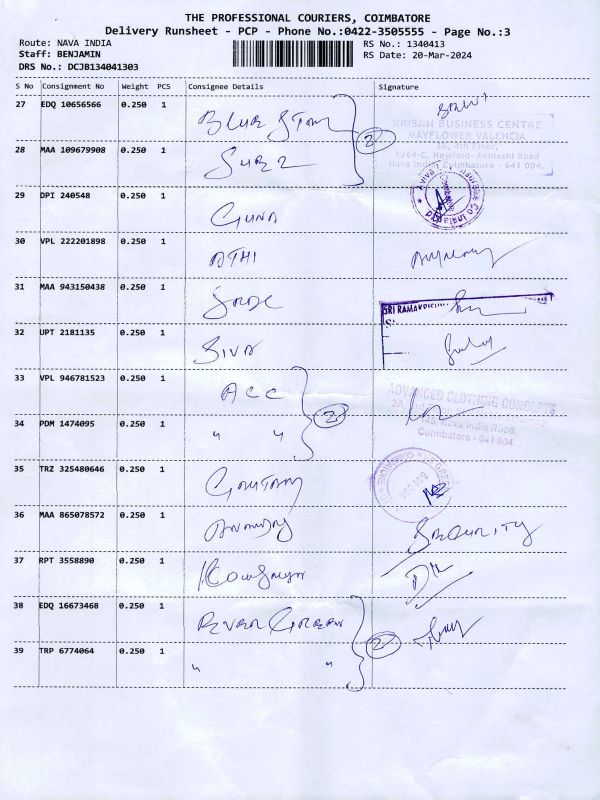 THE PROFESSIONAL COURIERS, COIMBATORE
Delivery Runsheet - PCP - Phone No.:0422-3505555 - Page No.:3
Route: NAVA INDIA
RS No.: 1340413
Staff: BENJAMIN
RS Date: 20-Mar-2024
DRS No.: DCJB134041303
S No Consignment No Weight PCS Consignee Details Signature
27 EDQ 10656566 0.250 1 BLUE STAR
KRISAN BUSINESS CENTRE
MAYFLOWER VALENCIA
3D, 4th Floor,
1264-C, New/old- Avinashi Road
Nava India Coimbatore - 641 004.
2
28 MAA 109679908 0.250 1
29 DPI 240548 0.250 1 GUNA
30 VPL 222201898 0.250 1 ATHI
31 MAA 943150438 0.250 1
SRI RAMAKRISHNA
32 UPT 2181135 0.250 1 SIVA
33 VPL 946781523 0.250 1 ACC
ADVANCED CLOTHING CONCEPTS
Nava India Road,
Coimbatore - 641 004.
2
34 PDM 1474095 0.250 1 " "
35 TRZ 325480646 0.250 1 GAUTAM
36 MAA 865078572 0.250 1
SECURITY
37 RPT 3558890 0.250 1
38 EDQ 16673468 0.250 1 EVER GREEN
2
39 TRP 6774064 0.250 1 " "